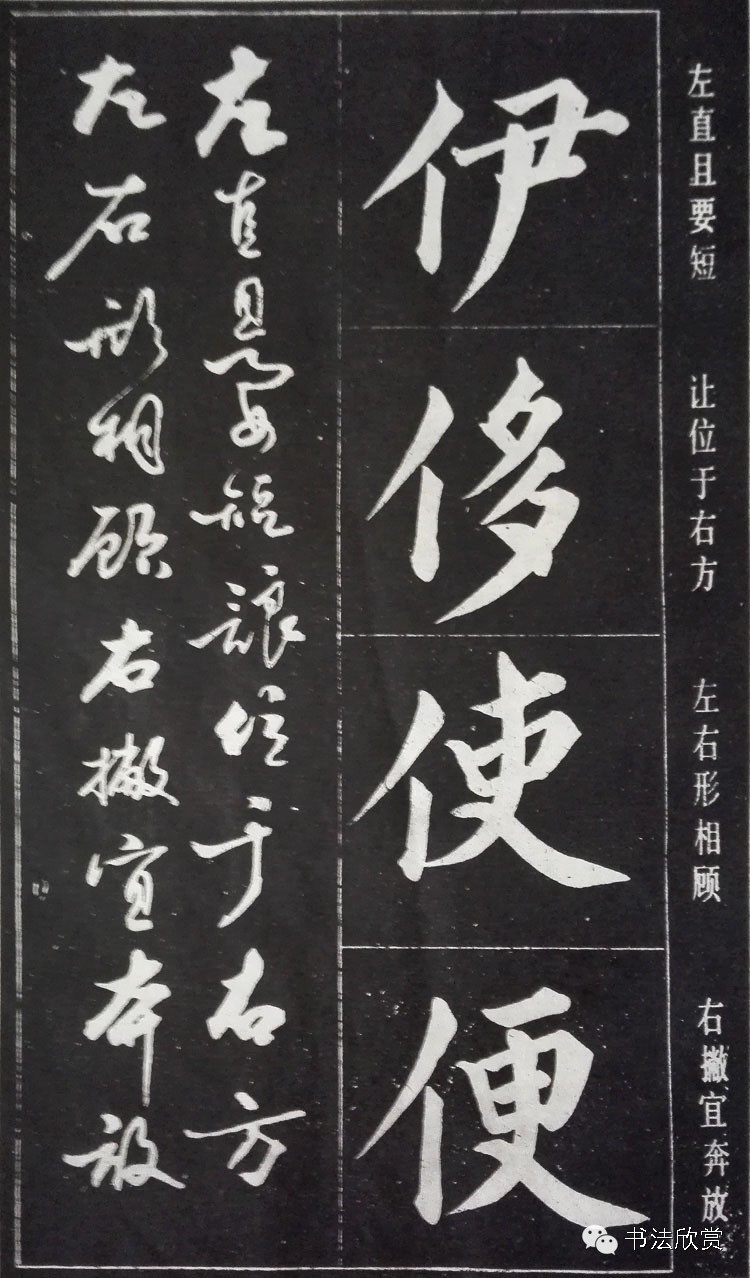 左直且要短 让位于右方 左右形相顾 右撇宜奔放
伊侈使便
左直且要短讓位于右方
左右形相顾右撇宜奔放
书法欣赏